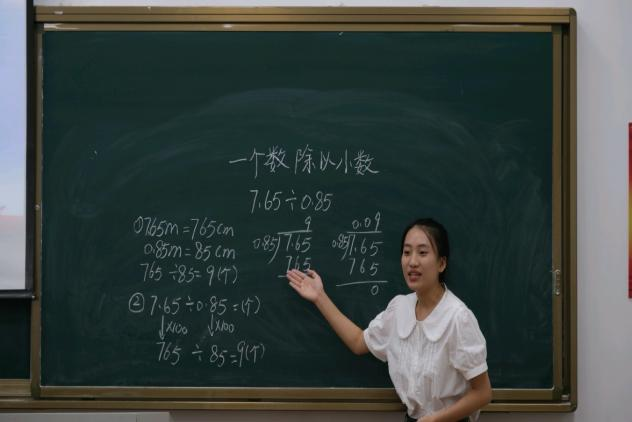 一个数除以小数
7.65÷0.85
①765m=765cm
0.85m=85cm
765÷85=9(个)
②7.65÷0.85=(个)
↓×100 ↓×100
765÷85=9(个)
9
0.85 7.65
765
0.09
0.85 7.65
765
0